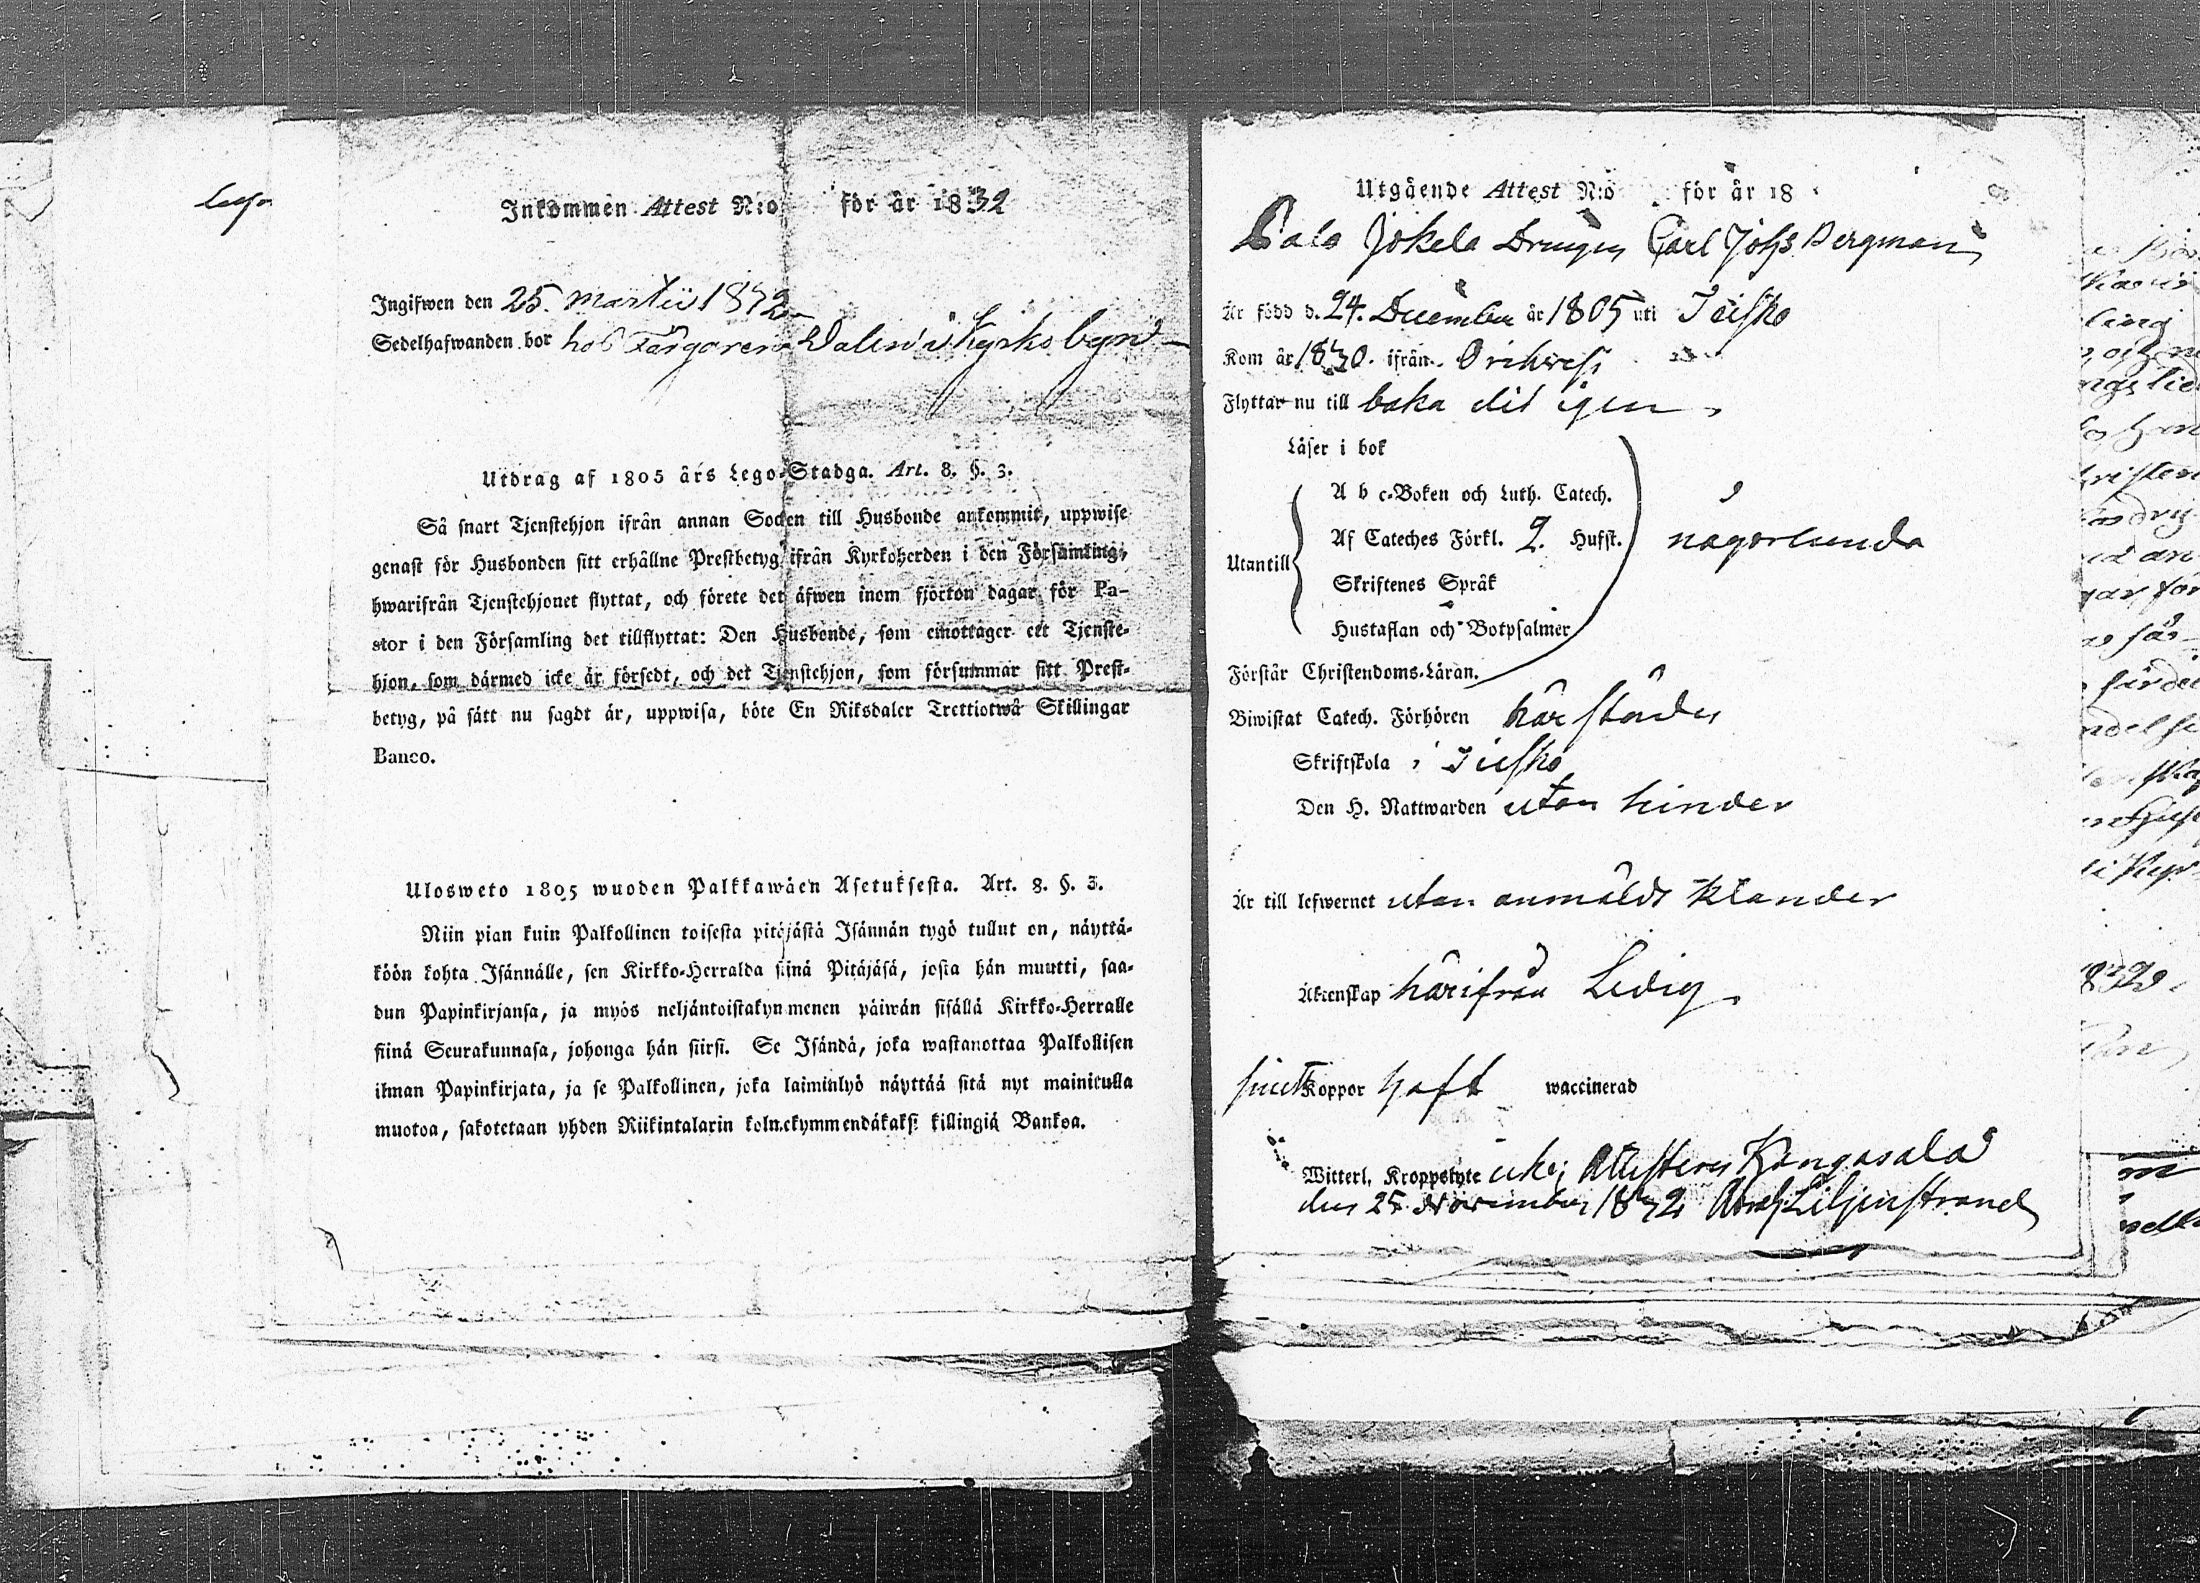 Inkommen Attest N:o för år 1832
Ingifwen den 25. Martii 1832
Sedelhafwanden bor hos Färgaren Dalen i Kyrkobyn
Utdrag af 1805 års Lego-Stadga. Art. 8. §. 3.
Så snart Tjenstehjon ifrån annan Socken till Husbonde ankommit, uppwise
genast för Husbonden sitt erhållne Prestbetyg ifrån Kyrkoherden i den Församling,
hwarifrån Tjenstehjonet flyttat, och förete det äfwen inom fjorton dagar för Pa-
stor i den Församling det tillflyttat: Den Husbonde, som emottager ett Tjenste-
hjon, som därmed icke är försedt, och det Tjenstehjon, som försummar sitt Prest-
betyg, på sätt nu sagdt är, uppwisa, böte En Riksdaler Trettiotwå Skillingar
Banco.
Ulosweto 1805 wuoden Palkkawäen Asetuksesta. Art. 8. §. 3.
Niin pian kuin Palkollinen toisesta pitäjästä Isännän tygö tullut on, näyttä-
köön kohta Isännälle, sen Kirkko-Herralda siinä Pitäjäsä, josta hän muutti, saa-
dun Papinkirjansa, ja myös neljäntoistakynmenen päiwän sisällä Kirkko-Herralle
siinä Seurakunnasa, johonga hän siirsi. Se Isändä, joka wastanottaa Palkollisen
ilman Papinkirjata, ja se Palkollinen, joka laiminlyö näyttää sitä nyt mainitulla
muotoa, sakotetaan yhden Riikintalarin kolmekymmendäkaksi killingiä Bankoa.
Utgående Attest N:o för år 18
Palo Jokela Drengen Carl Johs Bergman
Är född d. 24. December år 1805 uti Teisko
Kom år 1830. ifrån Orihwesi
Flyttar nu till baka dit igen
Läser i bok
A b c-Boken och Luth. Catech.
Af Cateches Förkl. 2. Hufst. någorlunda
Utantill
Skriftenes Språk
Hustaflan och Botpsalmer
Förstår Christendoms-Läran.
Biwistat Catech. Förhören härstädes
Skriftskola i Teisko
Den H. Nattwarden utan hinder
Är till lefwernet utan anmäldt klander
Äktenskap härifrån Ledig
Koppor haft waccinerad
Witterl. Kroppslyte icke; Attesterer Kangasala
den 25 November 1832 Abrah Liljenstrand